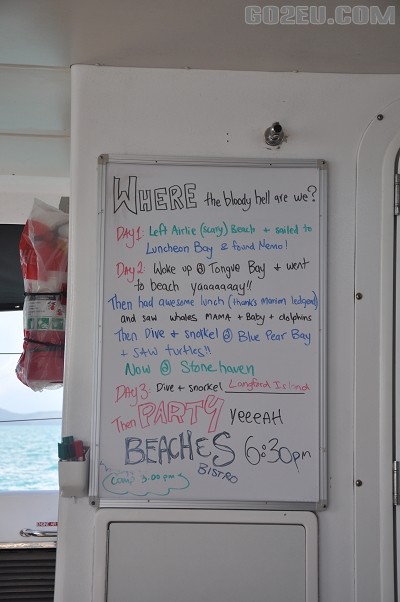 GO2EU.COM
WHERE the bloody hell are we?
DAY 1: Left Airlie (scary) Beach + sailed to
Luncheon Bay & found Nemo!
DAY 2: Woke up @ Tongue Bay + went
to beach yaaaaaaay!!
Then had awesome lunch (thanks Marion ledgend)
and saw whales MAMA + Baby + dolphins
Then Dive + snorkel @ Blue Pear Bay
+ saw turtles!!
Now @ Stonehaven
DAY 3: Dive + snorkel Langford Island
Then PARTY yeeeAH
BEACHES 6:30pm
BISTRO
3:00 pm